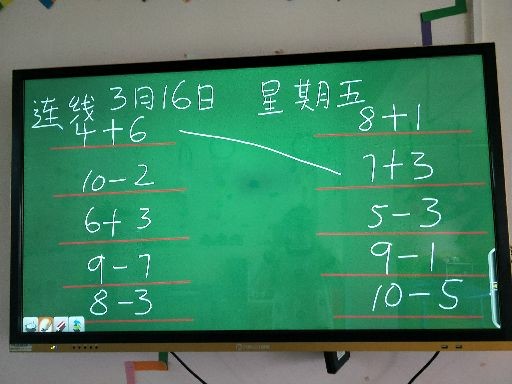 连线 3月16日 星期五
4+6 8+1
10-2 7+3
6+3 5-3
9-7 9-1
8-3 10-5